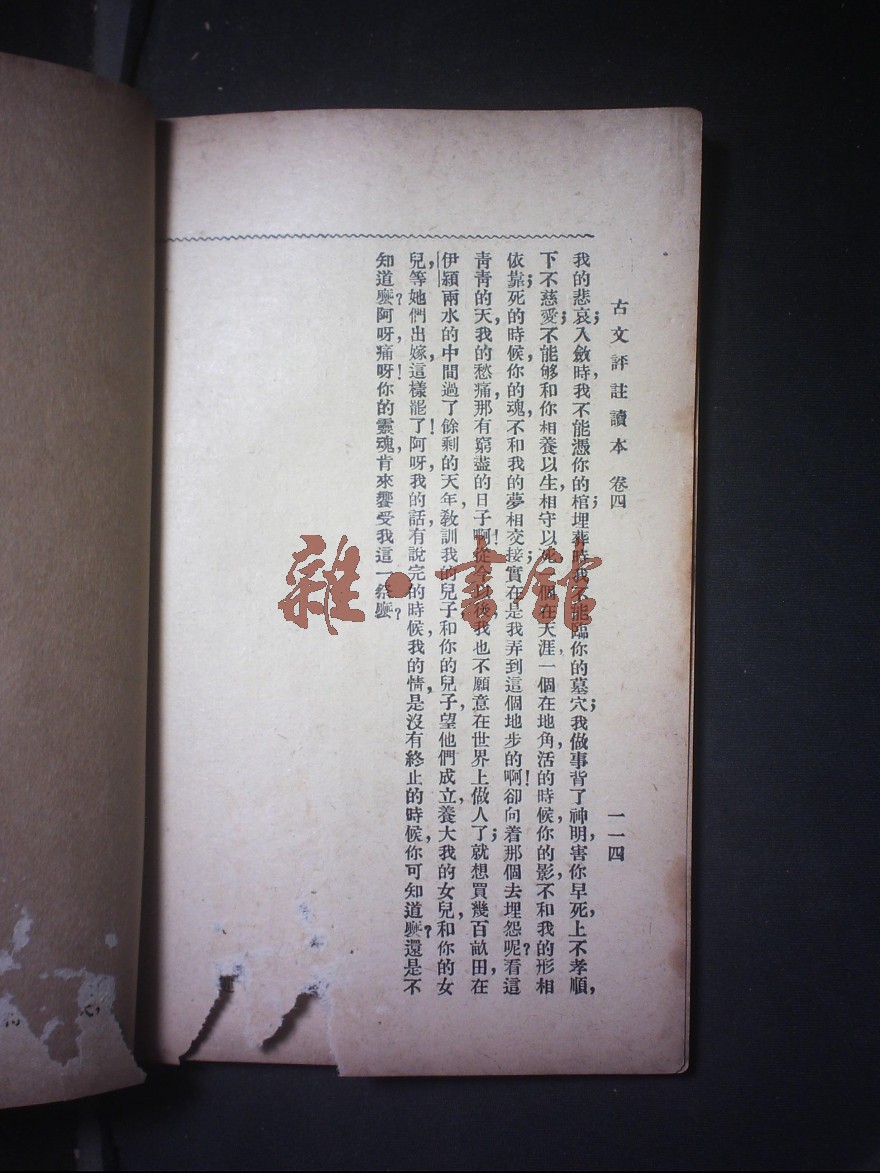 古文評註讀本 卷四 一一四
我的悲哀；入斂時，我不能憑你的棺；埋葬時，我不能臨你的墓穴；我做事背了神明，害你早死，上不孝順，
下不慈愛；不能够和你相養以生，相守以死，一個在天涯，一個在地角，活的時候，你的影不和我的形相
依靠；死的時候，你的魂，不和我的夢相交接；實在是我弄到這個地步的啊！卻向着那個去埋怨呢？看這
青青的天，我的愁痛，那有窮盡的日子啊！從今以後，我也不願意在世界上做人了；就想買幾百畝田，在
伊潁兩水的中間，過了餘剩的天年，敎訓我的兒子和你的兒子，望他們成立，養大我的女兒，和你的女
兒，等她們出嫁，這樣罷了！阿呀，我的話，有說完的時候，我的情，是沒有終止的時候，你可知道麼？還是不
知道麼？阿呀，痛呀！你的靈魂，肯來饗受我這一祭麼？
雜·書館